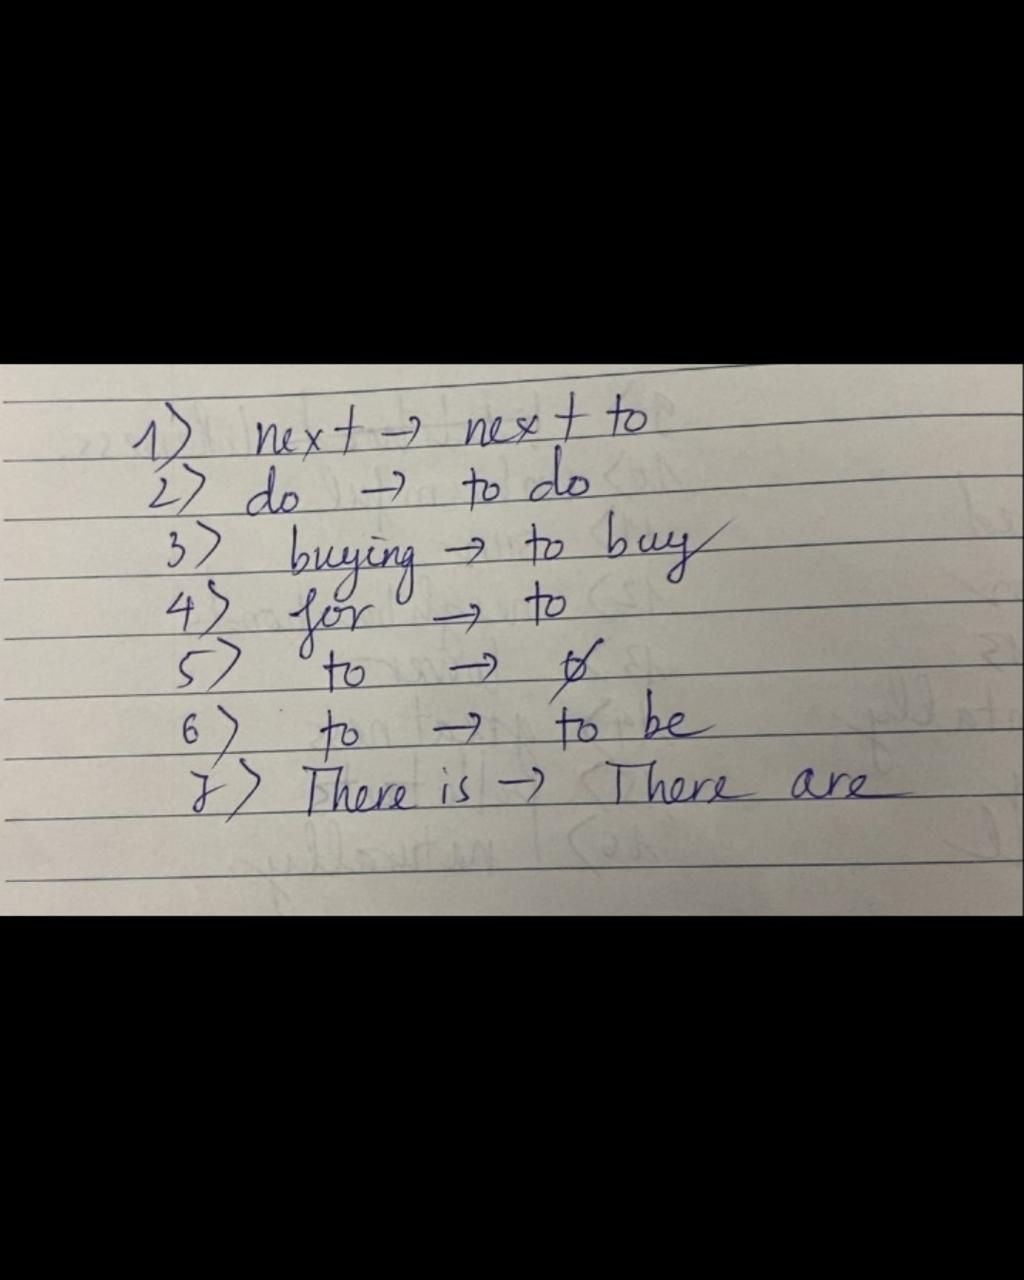 1) next → next to
2) do → to do
3) buying → to buy
4) for → to
5) to → ø
6) to → to be
7) There is → There are